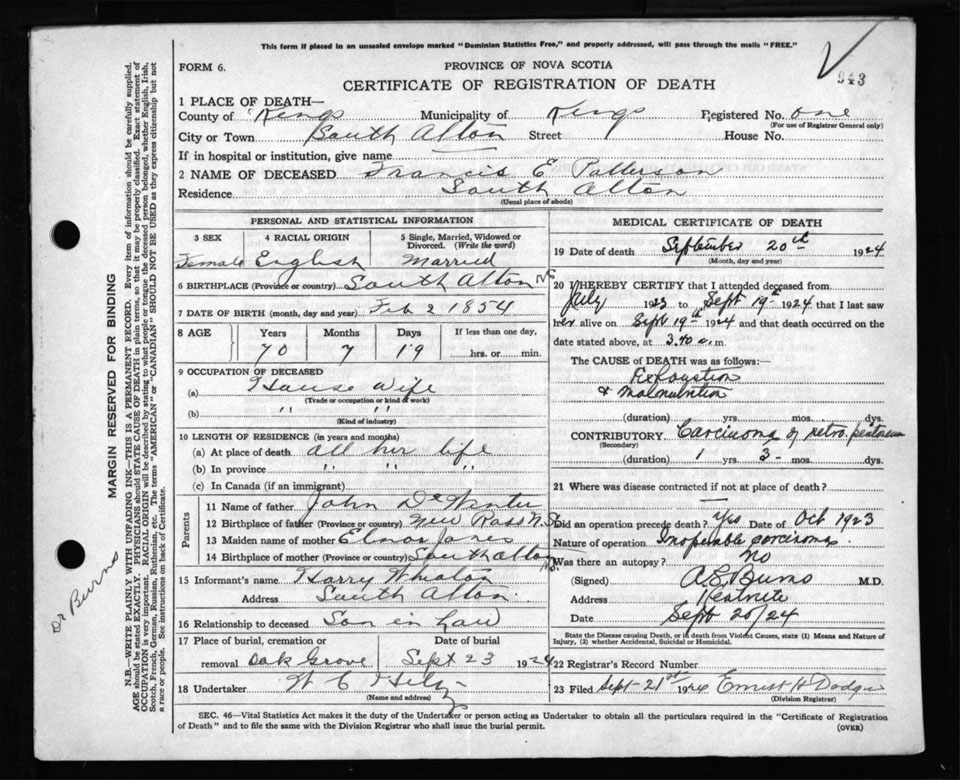 This form if placed in an unsealed envelope marked "Dominion Statistics Free," and properly addressed, will pass through the mails "FREE."
943
FORM 6. PROVINCE OF NOVA SCOTIA
CERTIFICATE OF REGISTRATION OF DEATH
1 PLACE OF DEATH—
County of Kings Municipality of Kings Registered No. one
(For use of Registrar General only)
City or Town South Alton Street House No.
If in hospital or institution, give name
2 NAME OF DECEASED Francis E Patterson
Residence South Alton
(Usual place of abode)
PERSONAL AND STATISTICAL INFORMATION
3 SEX 4 RACIAL ORIGIN 5 Single, Married, Widowed or Divorced. (Write the word)
Female English Married
6 BIRTHPLACE (Province or country) South Alton NS
7 DATE OF BIRTH (month, day and year) Feb 2 1854
8 AGE Years Months Days If less than one day,
70 7 19 hrs. or min.
9 OCCUPATION OF DECEASED
(a) House Wife
(Trade or occupation or kind of work)
(b) " "
(Kind of industry)
10 LENGTH OF RESIDENCE (in years and months)
(a) At place of death all her life
(b) In province " " "
(c) In Canada (if an immigrant)
Parents
11 Name of father John DeWinter
12 Birthplace of father (Province or country) New Ross N.S.
13 Maiden name of mother Elnor Jones
14 Birthplace of mother (Province or country) South Alton N.S.
15 Informant's name Harry Wheaton
Address South Alton.
16 Relationship to deceased Son in Law
17 Place of burial, cremation or removal Oak Grove Date of burial Sept 23 1924
18 Undertaker W C Hiltz
(Name and address)
MEDICAL CERTIFICATE OF DEATH
19 Date of death September 20th 1924
(Month, day and year)
20 I HEREBY CERTIFY that I attended deceased from
July 1923 to Sept 19th 1924 that I last saw
her alive on Sept 19th 1924 and that death occurred on the
date stated above, at 3.40 a.m.
The CAUSE OF DEATH was as follows:
Exhaustion
& Malnutrition
(duration) yrs. mos. dys.
CONTRIBUTORY Carcinoma of retro. peritoneum
(Secondary)
(duration) 1 yrs. 3- mos. dys.
21 Where was disease contracted if not at place of death?
Did an operation precede death? Yes Date of Oct 1923
Nature of operation Inoperable carcinoma
Was there an autopsy? No
(Signed) A.E. Burns M.D.
Address Kentville
Date Sept 20/24
State the Disease causing Death, or in death from Violent Causes, state (1) Means and Nature of Injury, (2) whether Accidental, Suicidal or Homicidal.
22 Registrar's Record Number
23 Filed Sept-21st 1924 Ernest H Dodge
(Division Registrar)
SEC. 46—Vital Statistics Act makes it the duty of the Undertaker or person acting as Undertaker to obtain all the particulars required in the "Certificate of Registration
of Death" and to file the same with the Division Registrar who shall issue the burial permit. (OVER)
MARGIN RESERVED FOR BINDING
N.B.—WRITE PLAINLY WITH UNFADING INK—THIS IS A PERMANENT RECORD. Every item of information should be carefully supplied.
AGE should be stated EXACTLY. PHYSICIANS should STATE CAUSE OF DEATH in plain terms, so that it may be properly classified. Exact statement of
OCCUPATION is very important. RACIAL ORIGIN will be described by stating to what people or tongue the deceased person belonged, whether English, Irish,
Scotch, French, German, Russian, Ruthenian, etc. The terms "AMERICAN" or "CANADIAN" SHOULD NOT BE USED as they express citizenship but not
a race or people. See instructions on back of Certificate.
Dr Burns